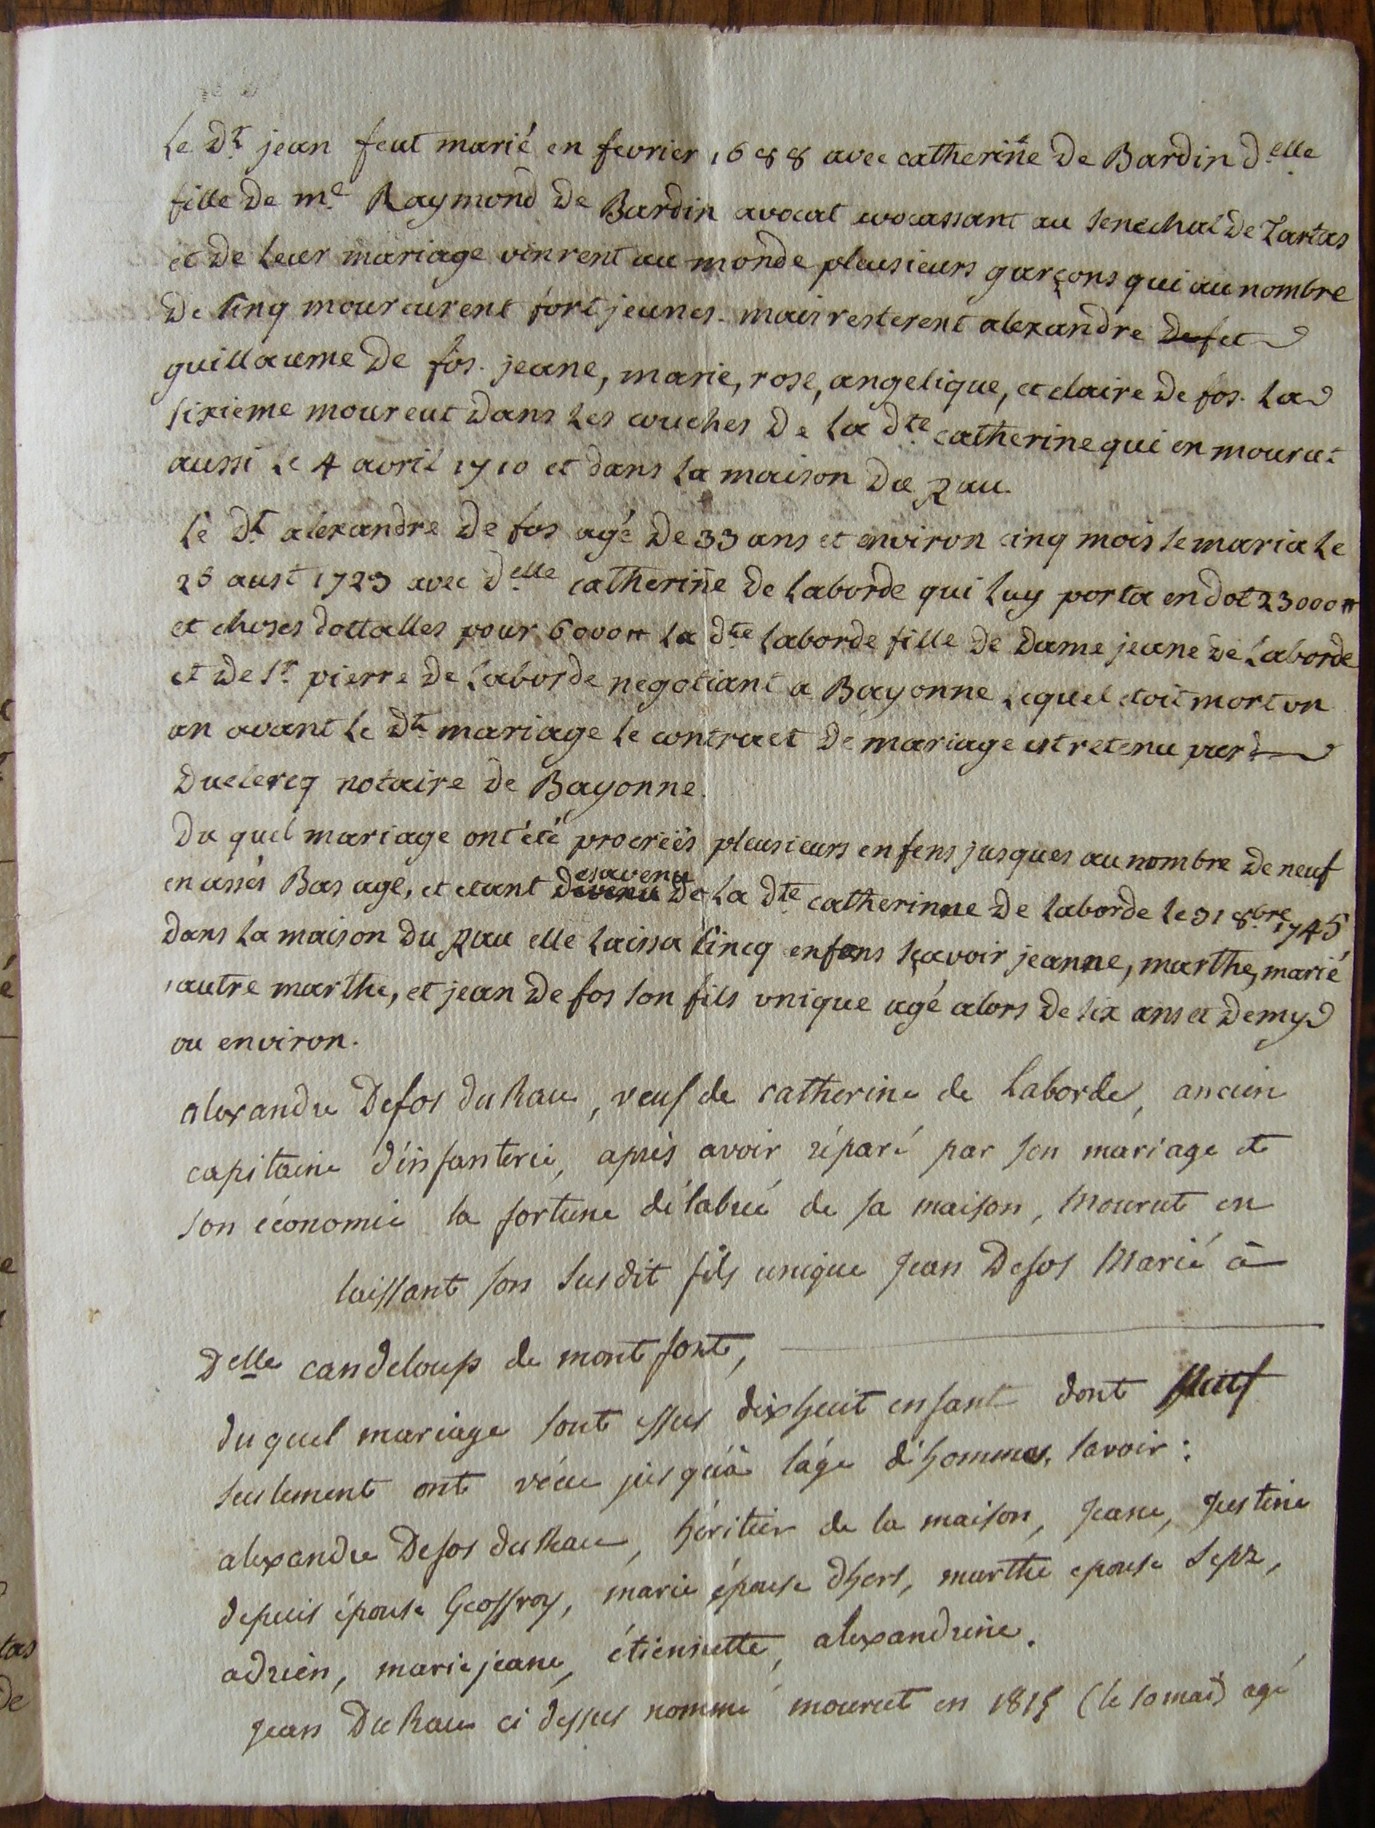 Le dt jean feut marié en fevrier 1688 avec catherine de Bardin delle
fille de me Raymond de Bardin avocat avocassant au senechal de Tartas
et de leur mariage vinrent au monde pleusieurs garçons qui au nombre
de sinq moururent fort jeunes. mais resterent alexandre et
guillaume de fos. jeane, marie, rose, angelique, et claire de fos. La
sixieme moureut dans les couches de la dte catherine qui en mourut
aussi le 4 avril 1710 et dans la maison du Rau
Le dt alexandre de fos agé de 33 ans et environ cinq mois se maria le
25 aust 1723 avec delle catherine de Laborde qui luy porta en dot 23000tt
et choses dottalles pour 6000tt la dte laborde fille de dame jeane de Laborde
et de sr pierre de Laborde negotiant a Bayonne lequel etoit mort un
an avant le dt mariage le contract de mariage est retenu par
Duclercq notaire de Bayonne.
Du quel mariage ont été procréés pleusieurs enfens jusques au nombre de neuf
en assés Bas age, et etant de la dte catherinne de laborde le 31 8bre 1745
dans la maison du Rau elle laissa sincq enfans sçavoir jeanne, marthe, marié
autre marthe, et jean de fos son fils unique agé alors de six ans et demy
ou environ.
alexandre Defos du Rau, veuf de catherine de Laborde, ancien
capitaine d'infanterie, après avoir réparé par son mariage et
son économie la fortune délabrée de sa maison, mourut en
laissant son susdit fils unique Jean Defos marié à
Delle candeloup de montfort,
duquel mariage sont issus dixhuit enfant dont neuf
seulement ont vécu jusqu'à l'âge d'hommes, savoir:
alexandre Defos du Rau, héritier de la maison, Jeane, Justine
depuis épouse Geoffroy, marie épouse dhers, marthe epouse
adrien, marie jeane, étiennette, alexandrine.
Jean Du Rau ci dessus nommé mourut en 1815 (le 10 mai) agé